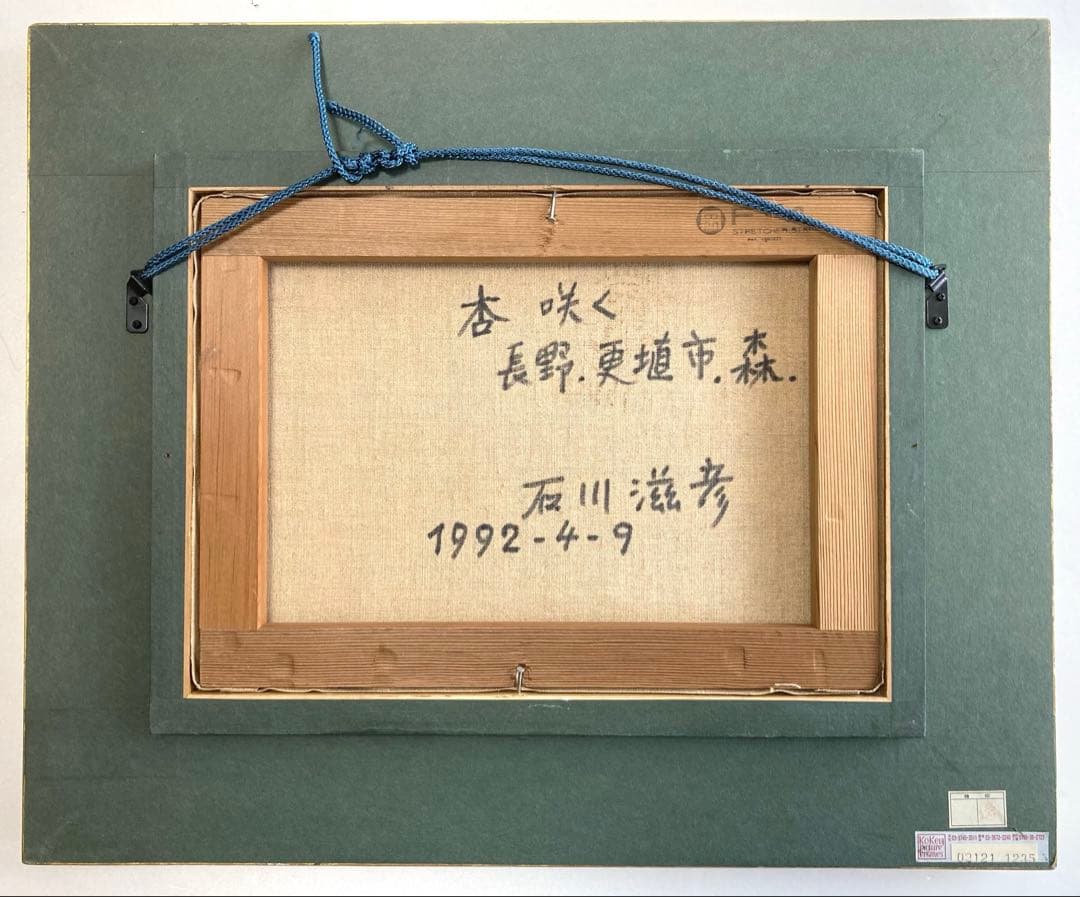 STRETCHER
杏 咲く
長野.更埴市.森.
石川 滋彦
1992-4-9
KoKeN
PICTURE
FRAMES
03121 1235